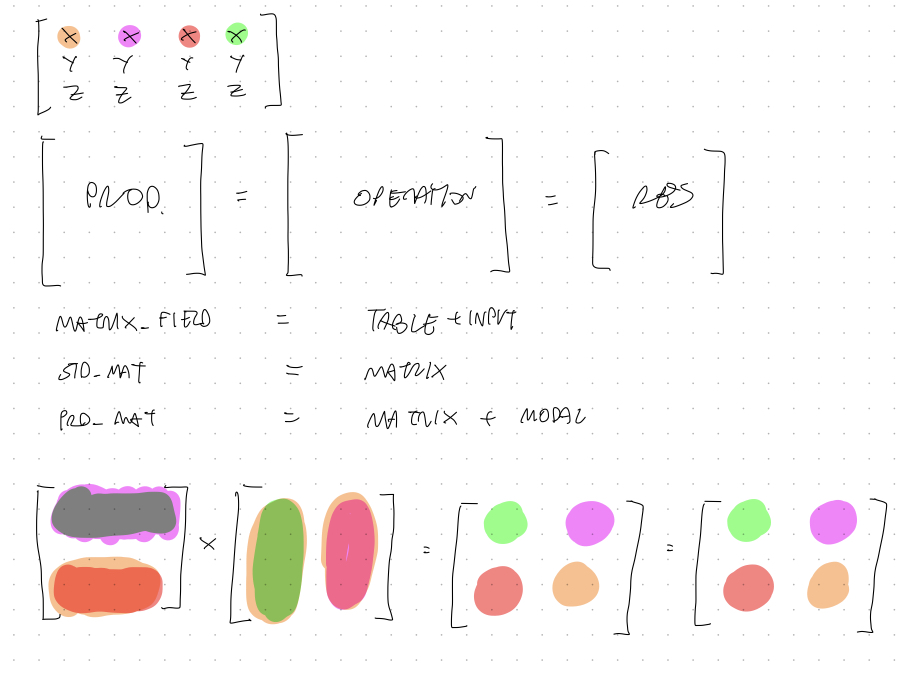 X X X X
Y Y Y Y
Z Z Z Z
PROD. = OPERATION = RES
MATRIX_FIELD = TABLE + INPUT
STD_MAT = MATRIX
PRD_MAT = MATRIX + MODAL
× = =